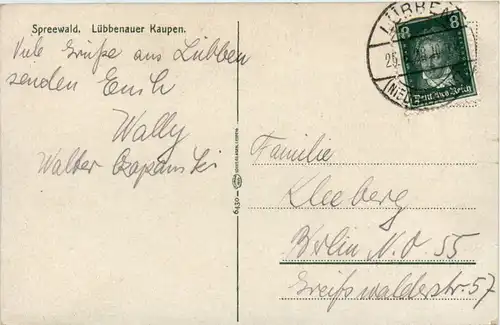 Spreewald. Lübbenauer Kaupen.
Viele Grüße aus Lübben
senden Euch
Wally
Walter Czapanski
LÜBBEN
8 8
Deutsches Reich
6450
Familie
Kleeberg
Berlin N.O 55
Greifswalderstr. 57